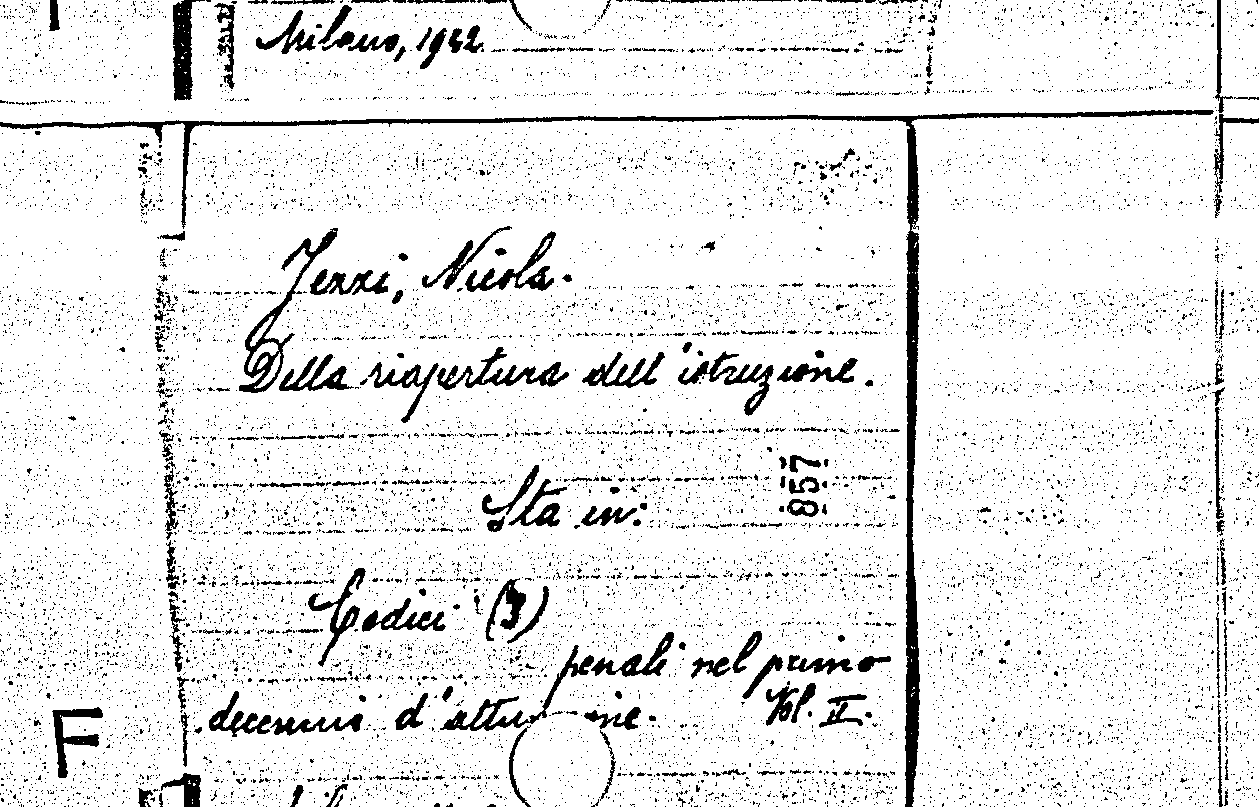 Milano, 1942
Jezzi, Nicola.
Della riapertura dell'istruzione.
857
Sta in:
Codici (I)
penali nel primo
decennio d'attu ne. Vol. II.
F